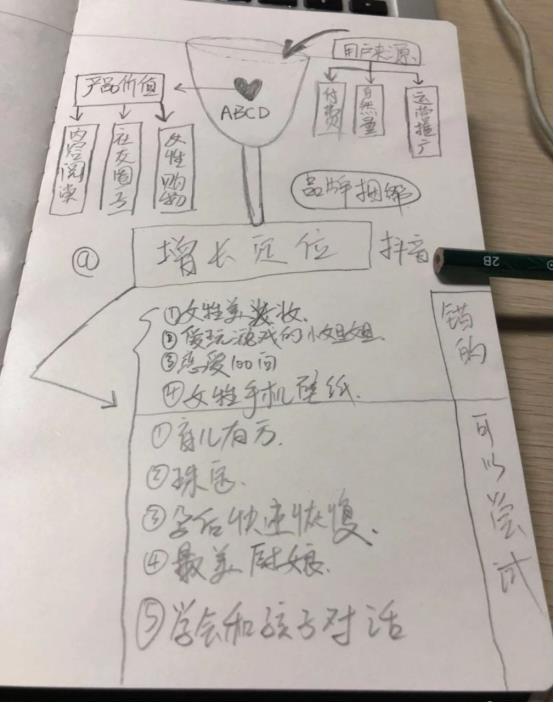 用户来源
付费
自然量
运营推广
产品价值
内容阅读
社交圈子
女性购物
ABCD
品牌捆绑
@
增长定位
抖音
2B
①女性美妆.
②爱玩游戏的小姐姐
③恋爱100问
④女性手机壁纸.
错的
①育儿有方.
②珠宝.
③孕后快速恢复.
④最美厨娘.
⑤学会和孩子对话
可以尝试